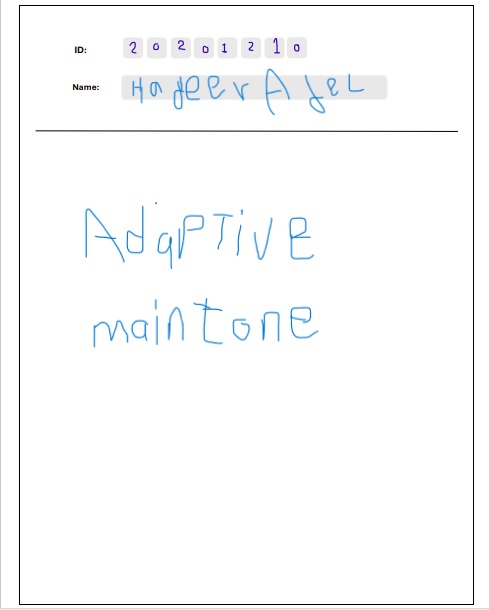 ID: 20201210
Name: Hadeer Adel
Adaptive
maintone